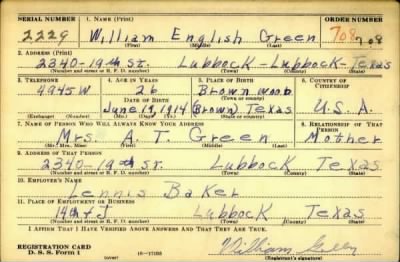 SERIAL NUMBER 1. NAME (Print) ORDER NUMBER
2229 William English Green 708 708
(First) (Middle) (Last)
2. ADDRESS (Print)
2340-19th St. Lubbock-Lubbock-Texas
(Number and street or R. F. D. number) (Town) (County) (State)
3. TELEPHONE 4. AGE IN YEARS 5. PLACE OF BIRTH 6. COUNTRY OF CITIZENSHIP
4945W 26 Brownwood
(Town or county)
DATE OF BIRTH
June 19, 1914 (Brown) Texas U.S.A.
(Exchange) (Number) (Mo.) (Day) (Yr.) (State or country)
7. NAME OF PERSON WHO WILL ALWAYS KNOW YOUR ADDRESS 8. RELATIONSHIP OF THAT PERSON
Mrs. A. T. Green Mother
(Mr., Mrs., Miss) (First) (Middle) (Last)
9. ADDRESS OF THAT PERSON
2340-19th St. Lubbock Texas
(Number and street or R. F. D. number) (Town) (County) (State)
10. EMPLOYER'S NAME
Lennis Baker
11. PLACE OF EMPLOYMENT OR BUSINESS
14th & J Lubbock Texas
(Number and street or R. F. D. number) (Town) (County) (State)
I AFFIRM THAT I HAVE VERIFIED ABOVE ANSWERS AND THAT THEY ARE TRUE.
REGISTRATION CARD
D. S. S. Form 1 16-17105 William Green
(Registrant's signature)